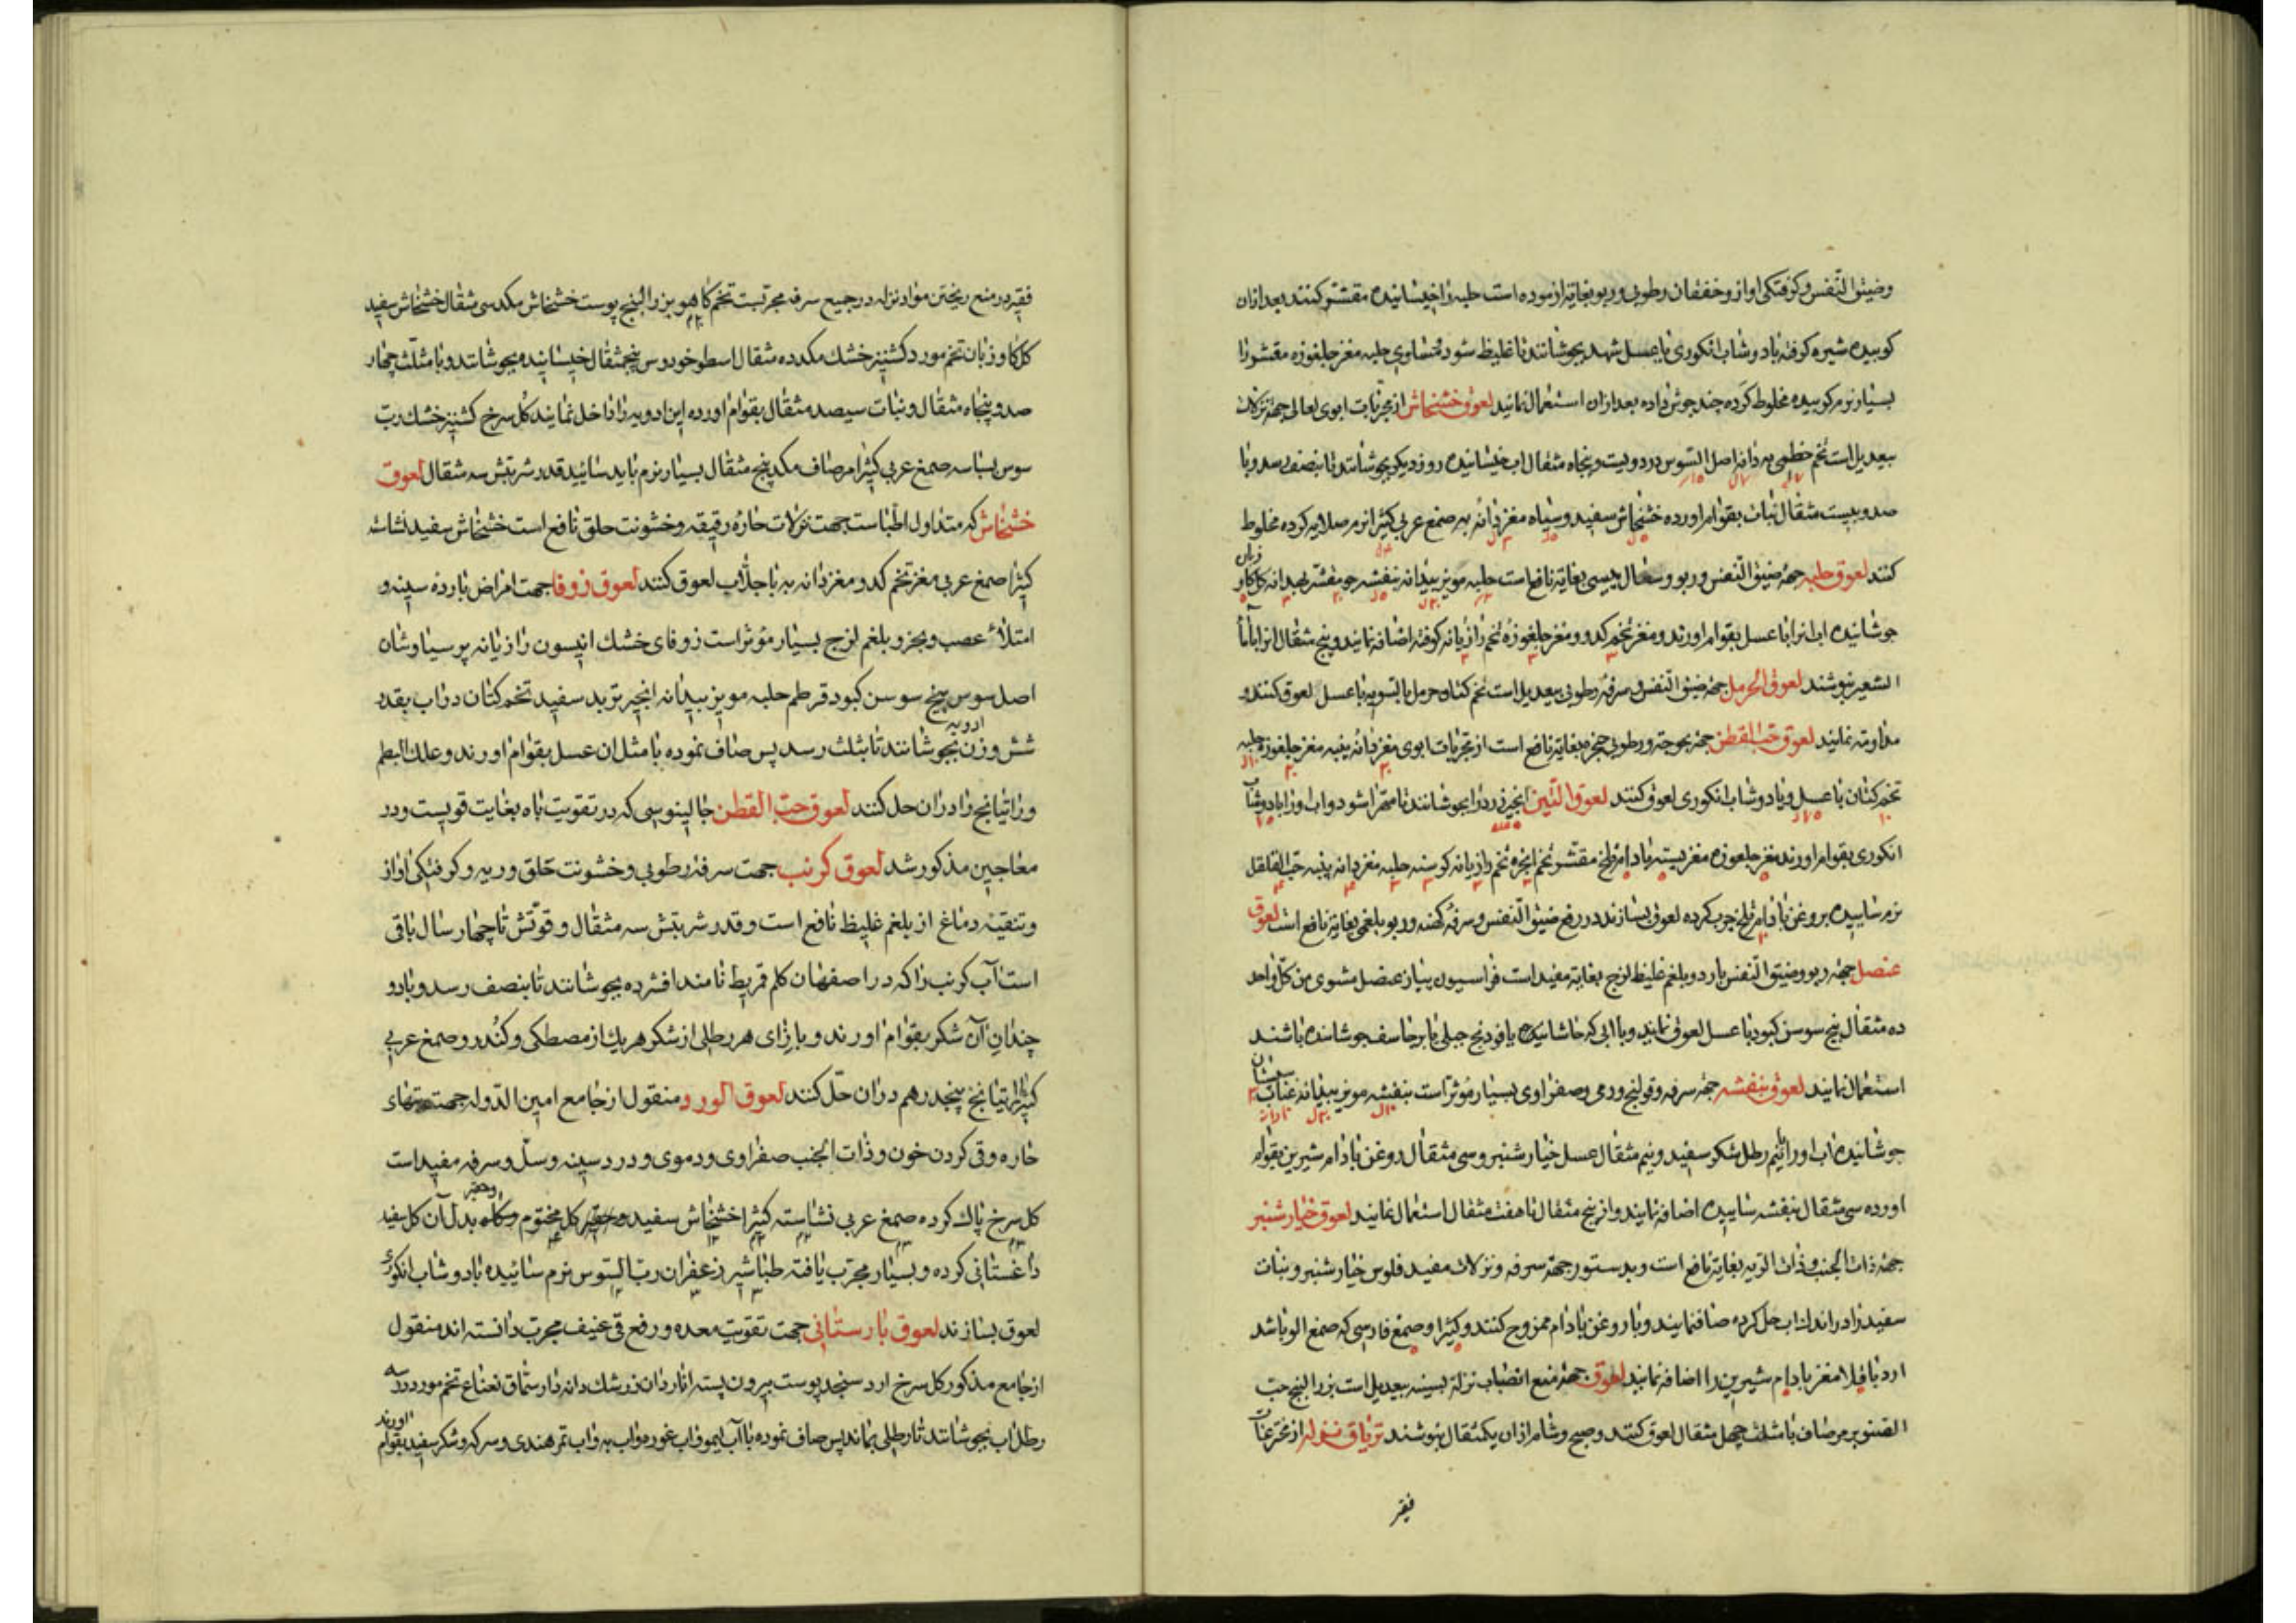 وضیق النّفس و کرفتکی اواز و خفقان رطوبی و ربو بغایة ازموده است حلبه را خیسانیده مقشّر کنند بعد ازان
کوبیده شیره کرفته بادوشاب انکوری یا عسل شهد بجوشانند تا غلیظ شود متساوی حلبه مغز چلغوزه مقشّورا
بسیار نرم کوبیده مخلوط کرده چند جوش داده بعد ازان استعمال نمایند لعوق خشخاش از مجرّبات ابوی تعالی جهة نزلات
بیعدیل است تخم خطمی به دانه اصل السّوس در دویست و پنجاه مثقال اب خیسانیده روز دیکر بجوشانند تا بنصف رسد و با
صد و بیست مثقال نبات بقوام اورده خشخاش سفید و سیاه مغز دانه به صمغ عربی کثیرا نرم صلایه کرده مخلوط
کنند لعوق حلبه جهة ضیق النّفس و ربو و سعال یبسی بغایة نافع است حلبه مویز بیدانه بنفشه جو مقشّر بهدانه کل کاو زبان
جوشانیده اب انرا با عسل بقوام اورند و مغز تخم کدو و مغز چلغوزه تخم رازیانه کوفته اضافه نمایند و پنج مثقال انرا با ماٴ
الشعیر بنوشند لعوق الحرمل جهة ضیق النّفس و سرفهٔ رطوبی بیعدیل است تخم کتان حرمل بالسّویه با عسل لعوق کنند و
مداومة نمایند لعوق حبّ القطن جهة بحوحة و رطوبی حنجره بغایة نافع است از مجرّبات ابوی مغز دانه پنبه مغز چلغوزه حلبه
تخم کتان با عسل و یا دوشاب انکوری لعوق کنند لعوق التّین انجیر زرد را بجوشانند تا مهرّا شود و اب اورا با دوشاب
انکوری بقوام اورند مغز چلغوزه مغز پسته بادام تلخ مقشّر تخم انجره تخم رازیانه کرسنه حلبه مغز دانه پنبه حبّ القلقل
نرم ساییده بروغن بادام تلخ چرب کرده لعوق بسازند در رفع ضیق النّفس و سرفهٔ کهنه و ربو بلغمی بغایة نافع است لعوق
عنصل جهة ربو و ضیق النّفس بارد و بلغم غلیظ لزج بغایة مفید است فراسیون پیاز عنصل مشوی من کلّ واحد
ده مثقال بیخ سوسن کبود با عسل لعوق نمایند و با ابی که حاشا نیک یا فودنج جبلی یا برنجاسف جوشانده باشند
استعمال نمایند لعوق بنفشه جهة سرفه و قولنج ورمی و صفراوی بسیار مؤثّر است بنفشه مویز بیدانه عنّاب سپستان
جوشانیده اب اورا بنیم رطل شکر سفید و نیم مثقال عسل خیار شنبر و سی مثقال روغن بادام شیرین بقوام
اورده سی مثقال بنفشه ساییده اضافه نمایند و از پنج مثقال تا هفت مثقال استعمال نمایند لعوق خیار شنبر
جهة ذات الجنب و ذات الریه بغایة نافع است و بدستور جهة سرفه و نزلات مفید فلوس خیار شنبر و نبات
سفید را در اندک اب حل کرده صاف نمایند و با روغن بادام ممزوج کنند و کثیرا و صمغ فارسی که صمغ الو باشد
ارد باقلا مغز بادام شیرین را اضافه نمایند لعوق جهة منع انصباب نزلة بسینه بیعدیل است بزر البنج حبّ
الصّنوبر مرصاف با مثلّث چهل مثقال لعوق کنند و صبح و شام ازان یکمثقال بنوشند تریاق نزله از مخترعات
فقیر
فقیر در منع ریختن مواد نزله در جمیع سرفه مجرّبست تخم کاهو بزر البنج پوست خشخاش مکد سی مثقال خشخاش سفید
کل کاوزبان تخم مورد کشنیز خشک مکد ده مثقال اسطوخودوس پنجمثقال خیسانیده بجوشانند و با مثلّث چهار
صد و پنجاه مثقال و نبات سیصد مثقال بقوام اورده این ادویه را داخل نمایند کل سرخ کشنیز خشک ربّ
سوس بسباسه صمغ عربی کثیرا مرصاف مکد پنج مثقال بسیار نرم باید سائید قدر شربتش سه مثقال لعوق
خشخاش که متداول اطباست جهت نزلات حارهٔ رقیقه و خشونت حلق نافع است خشخاش سفید نشاسته
کثیرا صمغ عربی مغز تخم کدو مغز دانه به با جلّاب لعوق کنند لعوق زوفا جهت امراض بارده سینه و
امتلاٴ عصب و بحر و بلغم لزج بسیار مؤثر است زوفای خشک انیسون رازیانه پرسیاوشان
اصل سوس بیخ سوسن کبود قرطم حلبه مویز بیدانه انجیر تربد سفید تخم کتان در اب بقدر
شش وزن ادویه بجوشانند تا بثلث رسد پس صاف نموده با مثل ان عسل بقوام اورند و علک البطم
و راتیانج را دران حل کنند لعوق حبّ القطن جالینوسی که در تقویت باه بغایت قویست و در
معاجین مذکور شد لعوق کرنب جهت سرفهٔ رطوبی و خشونت حلق و ریه و کرفتکی اواز
و تنقیهٔ دماغ از بلغم غلیظ نافع است و قدر شربتش سه مثقال و قوّتش تا چهار سال باقی
است آب کرنب را که در اصفهان کلم قمریط نامند افشرده بجوشانند تا بنصف رسد و با دو
چندان آن شکر بقوام اورند و بازای هر رطلی از شکر هریک از مصطکی و کندر و صمغ عربی
کثیرا راتیانج پنجدرهم دران حلّ کنند لعوق الورد و منقول از جامع امین الدّوله جهت تبهای
حاره و قی کردن خون و ذات الجنب صفراوی و دموی و درد سینه و سلّ و سرفه مفید است
کل سرخ پاک کرده صمغ عربی نشاسته کثیرا خشخاش سفید کل مختوم و کاه بدل آن کل سفید
داغستانی کرده و بسیار مجرّب یافته طباشیر زعفران ربّ السّوس نرم سائیده بادوشاب انکوری
لعوق بسازند لعوق بارستانی جهت تقویت معده و رفع قی عنیف مجرب دانسته اند منقول
از جامع مذکور کل سرخ ارد سنجد پوست بیرون پسته انار دان زرشک دانه دار سمّاق نعناع تخم مورد در سه
رطل اب بجوشانند تا رطلی بماند پس صاف نموده با آب لیمو و اب غوره و اب به و اب تمر هندی و سرکه و شکر سفید بقوام اورند